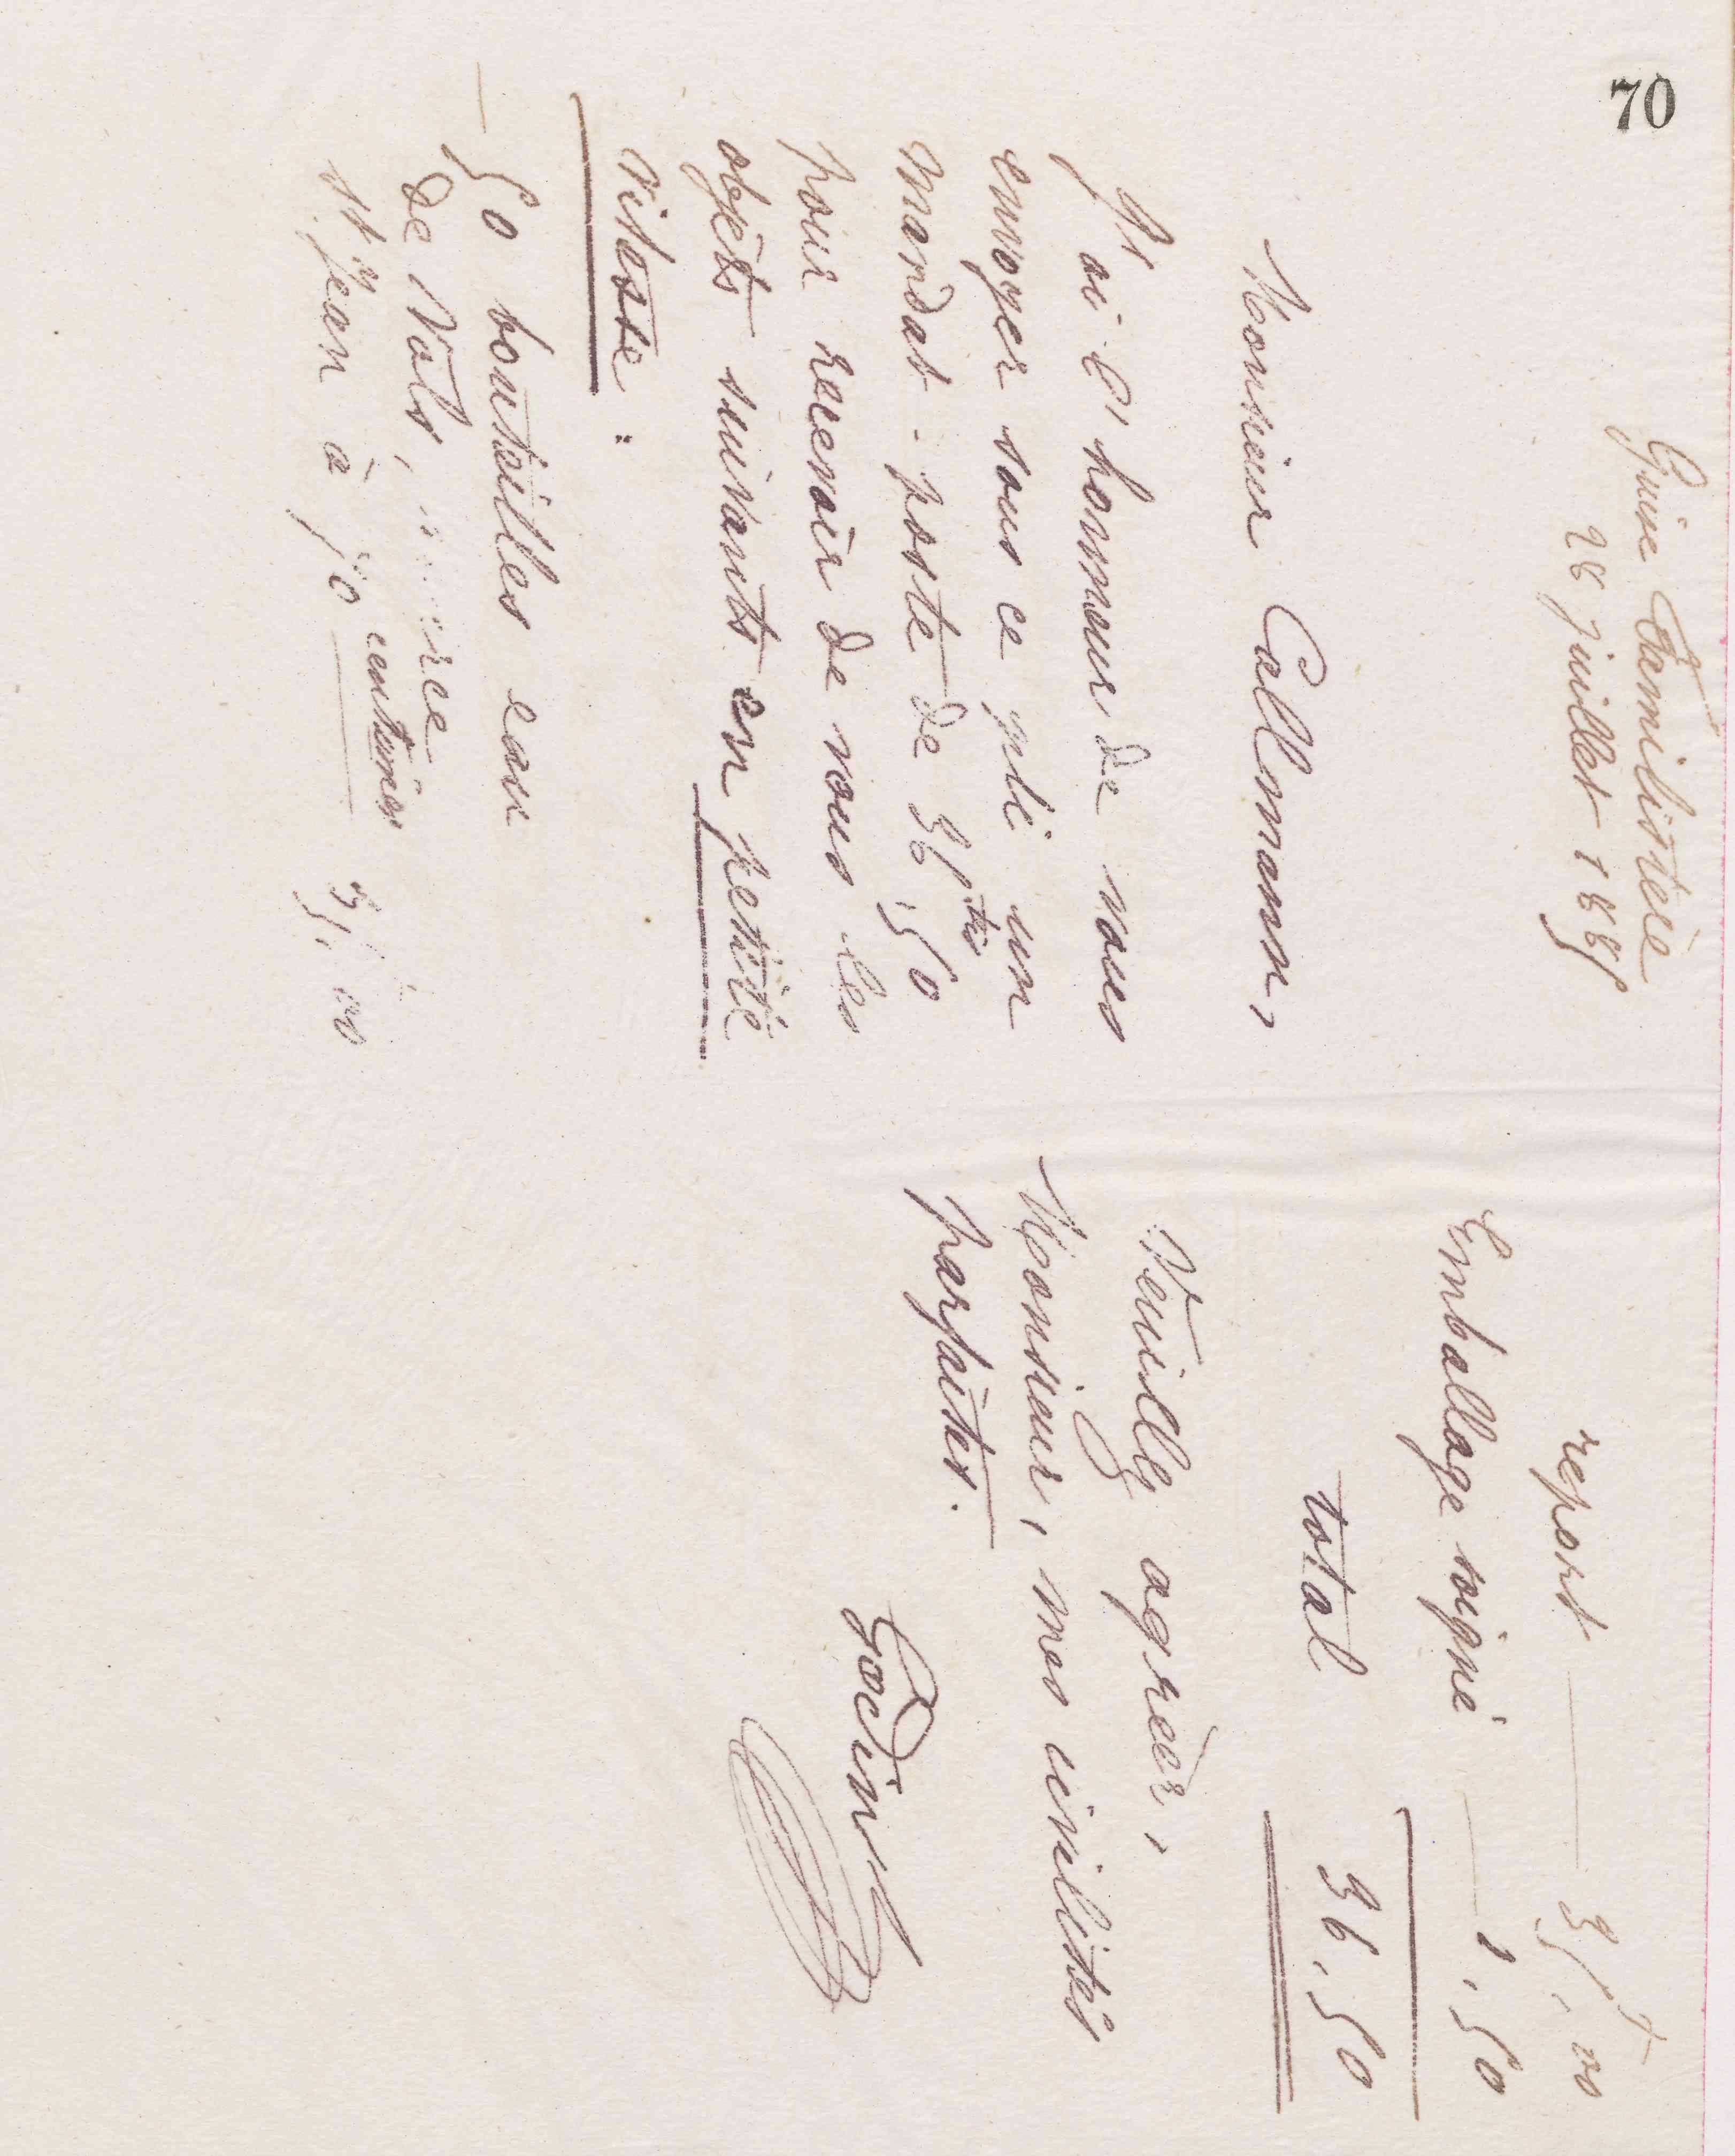 70
Guise Familistère
28 juillet 1885
Monsieur Callmann,
J'ai l'honneur de vous
envoyer sous ce pli un
mandat-poste de 36 frs,50
pour recevoir de vous les
objets suivants en petite
vitesse :
— 50 bouteilles eau
de Vals,
St Jean à 70 centimes — 35f,00
report — 35f,00
Emballage soigné — 1,50
total 36,50
Veuillez agréer,
Monsieur, mes civilités
parfaites.
Godin